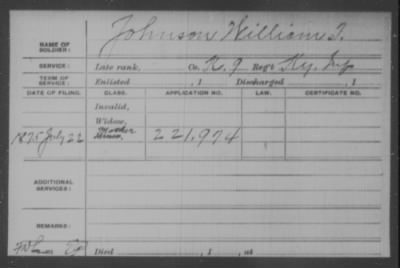 NAME OF SOLDIER: Johnson William T.
SERVICE: Late rank, Co. K. 9 Reg't Ky. Inf
TERM OF SERVICE: Enlisted , 1 Discharged , 1
DATE OF FILING. CLASS. APPLICATION NO. LAW. CERTIFICATE NO.
Invalid,
Widow,
Mother
1875 July 22 Minor, 221,974
ADDITIONAL SERVICES:
REMARKS:
Died , 1 , at